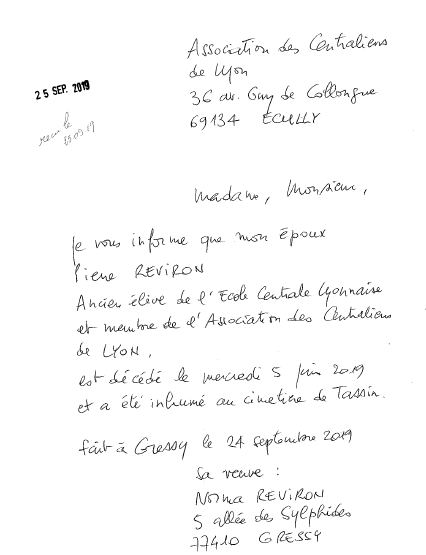 Association des Centraliens
de Lyon
25 SEP. 2019
36 av. Guy de Collongue
69134 ECULLY
reçu le
Madame, Monsieur,
Je vous informe que mon époux
Pierre REVIRON
Ancien élève de l'Ecole Centrale Lyonnaise
et membre de l'Association des Centraliens
de LYON,
est décédé le mercredi 5 juin 2019
et a été inhumé au cimetière de Tassin.
fait à Gressy le 24 septembre 2019
Sa veuve :
Norma REVIRON
5 allée des Sylphides
77410 GRESSY